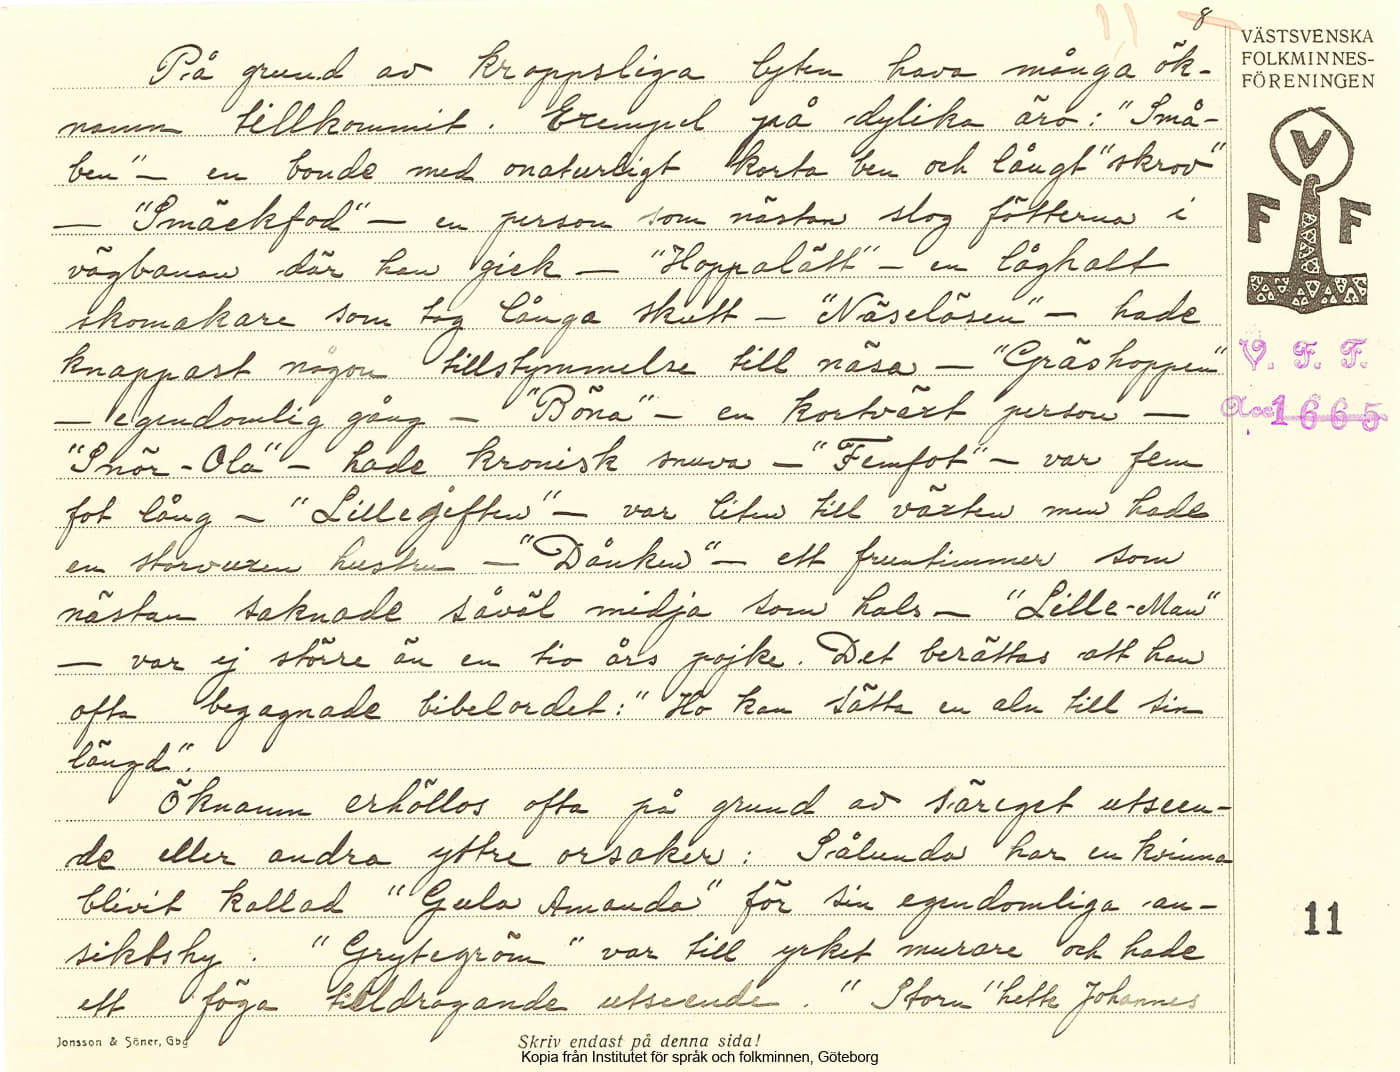 8
11
På grund av kroppsliga lyten hava många ök-
namn tillkommit. Exempel på dylika äro: "Små-
ben" - en bonde med onaturligt korta ben och långt "skrov"
- "Smäckfod" - en person som nästan slog fötterna i
vägbanan där han gick - "Hoppalätt" - en låghalt
skomakare som tog långa skutt - "Näselösen" - hade
knappast någon tillstymmelse till näsa - "Gräshoppen"
- egendomlig gång - "Böna" - en kortväxt person -
"Snör-Ola" - hade kronisk snuva - "Femfot" - var fem
fot lång - "Lillegiften" - var liten till växten men hade
en storvuxen hustru - "Dånken" - ett fruntimmer som
nästan saknade såväl midja som hals - "Lille-Man"
- var ej större än en tio års pojke. Det berättas att han
ofta begagnade bibelordet: "Ho kan sätta en aln till sin
längd".
Öknamn erhöllos ofta på grund av säreget utseen-
de eller andra yttre orsaker: Sålunda har en kvinna
blivit kallad "Gula Amanda" för sin egendomliga an-
siktshy. "Grytegröm" var till yrket murare och hade
ett föga tilldragande utseende. "Storn" hette Johannes
VÄSTSVENSKA
FOLKMINNES-
FÖRENINGEN
V
F F
V. F. F.
Acc 1665
11
Jonsson & Söner, Gbg
Skriv endast på denna sida!
Kopia från Institutet för språk och folkminnen, Göteborg